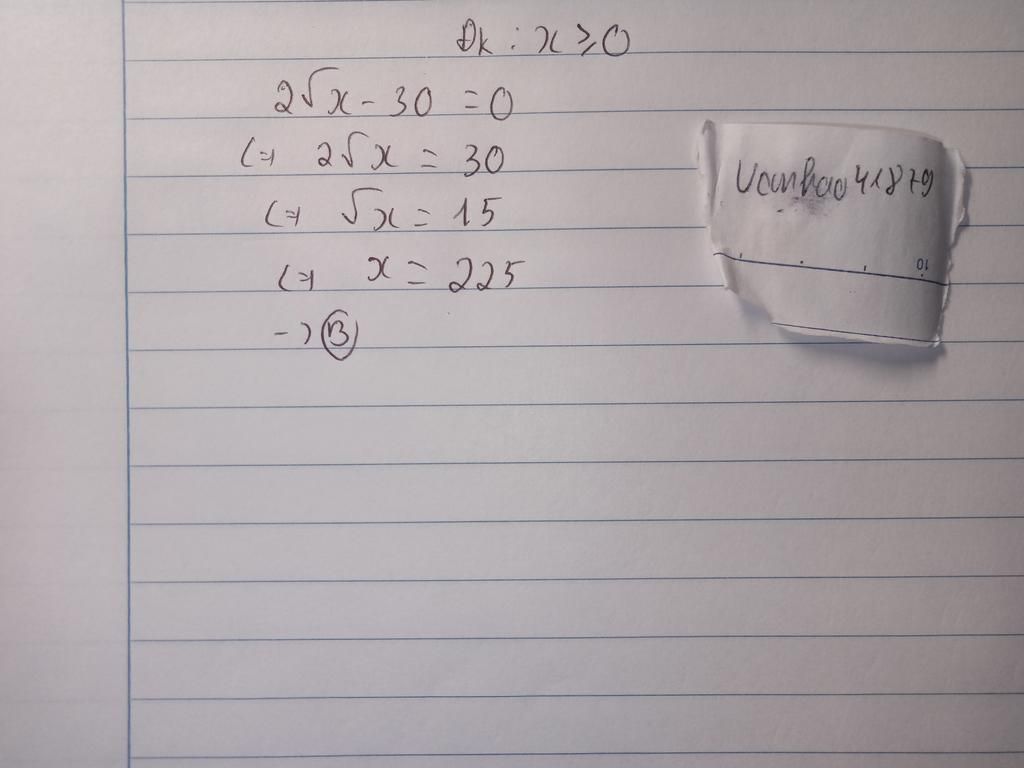 Đk : x ≥ 0
2√x - 30 = 0
(=) 2√x = 30
(=) √x = 15
(=) x = 225
-) B
Vanhao41879
10